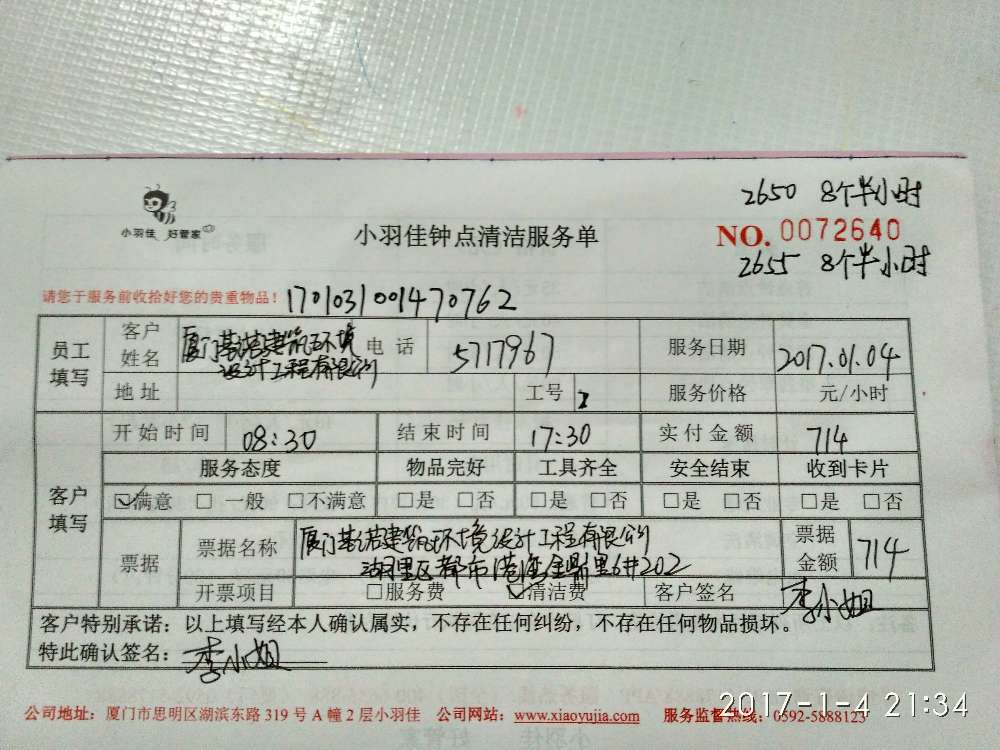 2650 8个半小时
小羽佳 好管家
小羽佳钟点清洁服务单
NO. 0072640
2655 8个半小时
请您于服务前收拾好您的贵重物品！ 1701031001470762
员工填写
客户姓名 厦门基诺建筑环境设计工程有限公司 电话 5717967 服务日期 2017.01.04
地址 工号 2 服务价格 元/小时
客户填写
开始时间 08:30 结束时间 17:30 实付金额 714
服务态度 物品完好 工具齐全 安全结束 收到卡片
☑满意 □一般 □不满意 □是 □否 □是 □否 □是 □否 □是 □否
票据 票据名称 厦门基诺建筑环境设计工程有限公司 票据金额 714
湖里区都市港湾金鼎里6#202
开票项目 □服务费 ☑清洁费 客户签名 李小姐
客户特别承诺：以上填写经本人确认属实，不存在任何纠纷，不存在任何物品损坏。
特此确认签名：李小姐
公司地址：厦门市思明区湖滨东路319号A幢2层小羽佳 公司网站：www.xiaoyujia.com 服务监督热线：0592-5888123
2017-1-4 21:34